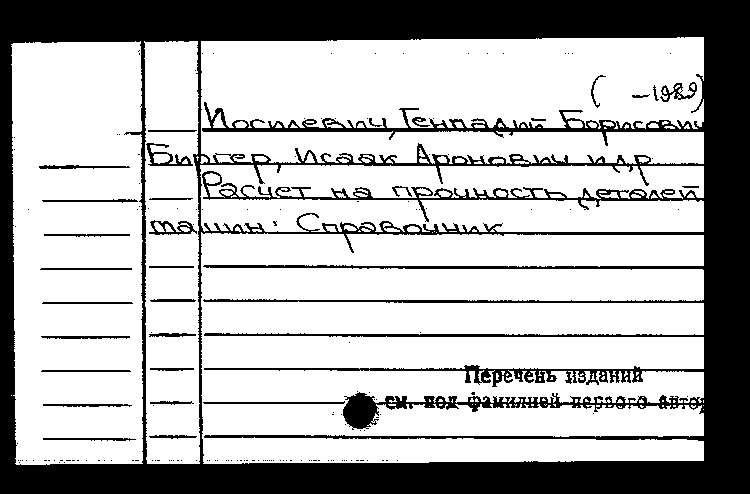 ( –1989)
Иосилевич, Геннадий Борисович
Биргер, Исаак Аронович и др
Расчет на прочность деталей
машин: Справочник
Перечень изданий
см. под фамилией первого автор